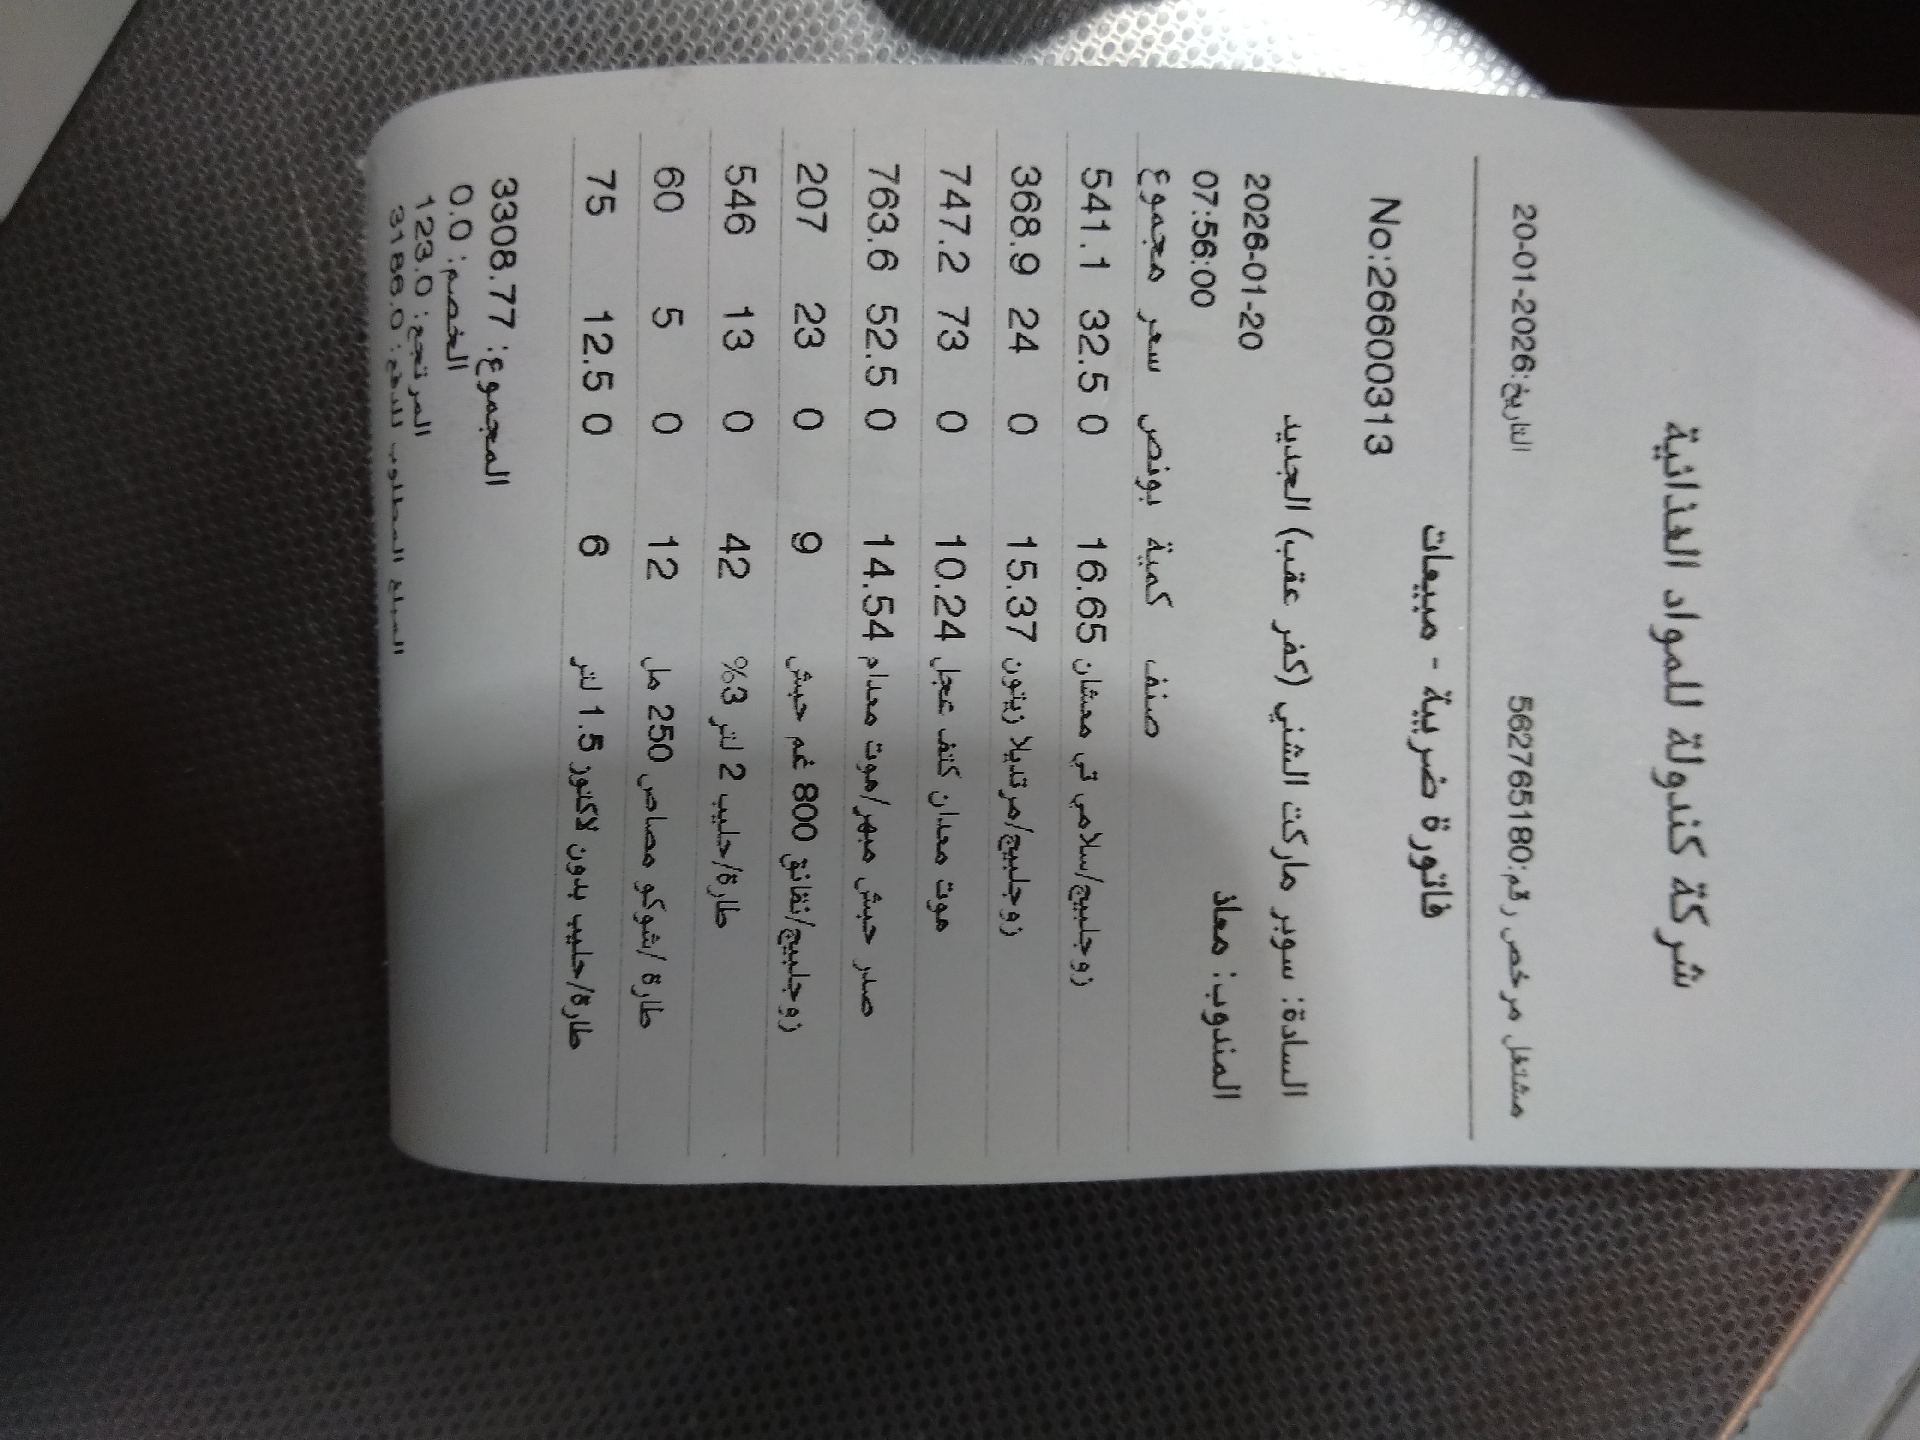 شركة كندولة للمواد الغذائية
مشتغل مرخص رقم:562765180 التاريخ:2026-01-20
فاتورة ضريبية - مبيعات
No:26600313
السادة: سوبر ماركت الشني (كفر عقب) الجديد
المندوب: معاذ 2026-01-20
07:56:00
صنف كمية بونص سعر مجموع
زوجلبيج/سلامي تي معشان 16.65 0 32.5 541.1
زوجلبيج/مرتديلا زيتون 15.37 0 24 368.9
موت معدان كتف عجل 10.24 0 73 747.2
صدر حبش مبهر/موت معدام 14.54 0 52.5 763.6
زوجلبيج/نقانق 800 غم حبش 9 0 23 207
طارة/حليب 2 لتر 3% 42 0 13 546
طارة /شوكو مصاص 250 مل 12 0 5 60
طارة/حليب بدون لاكتوز 1.5 لتر 6 0 12.5 75
المجموع: 3308.77
الخصم: 0.0
المرتجع: 123.0
المبلغ المطلوب للدفع: 3186.0